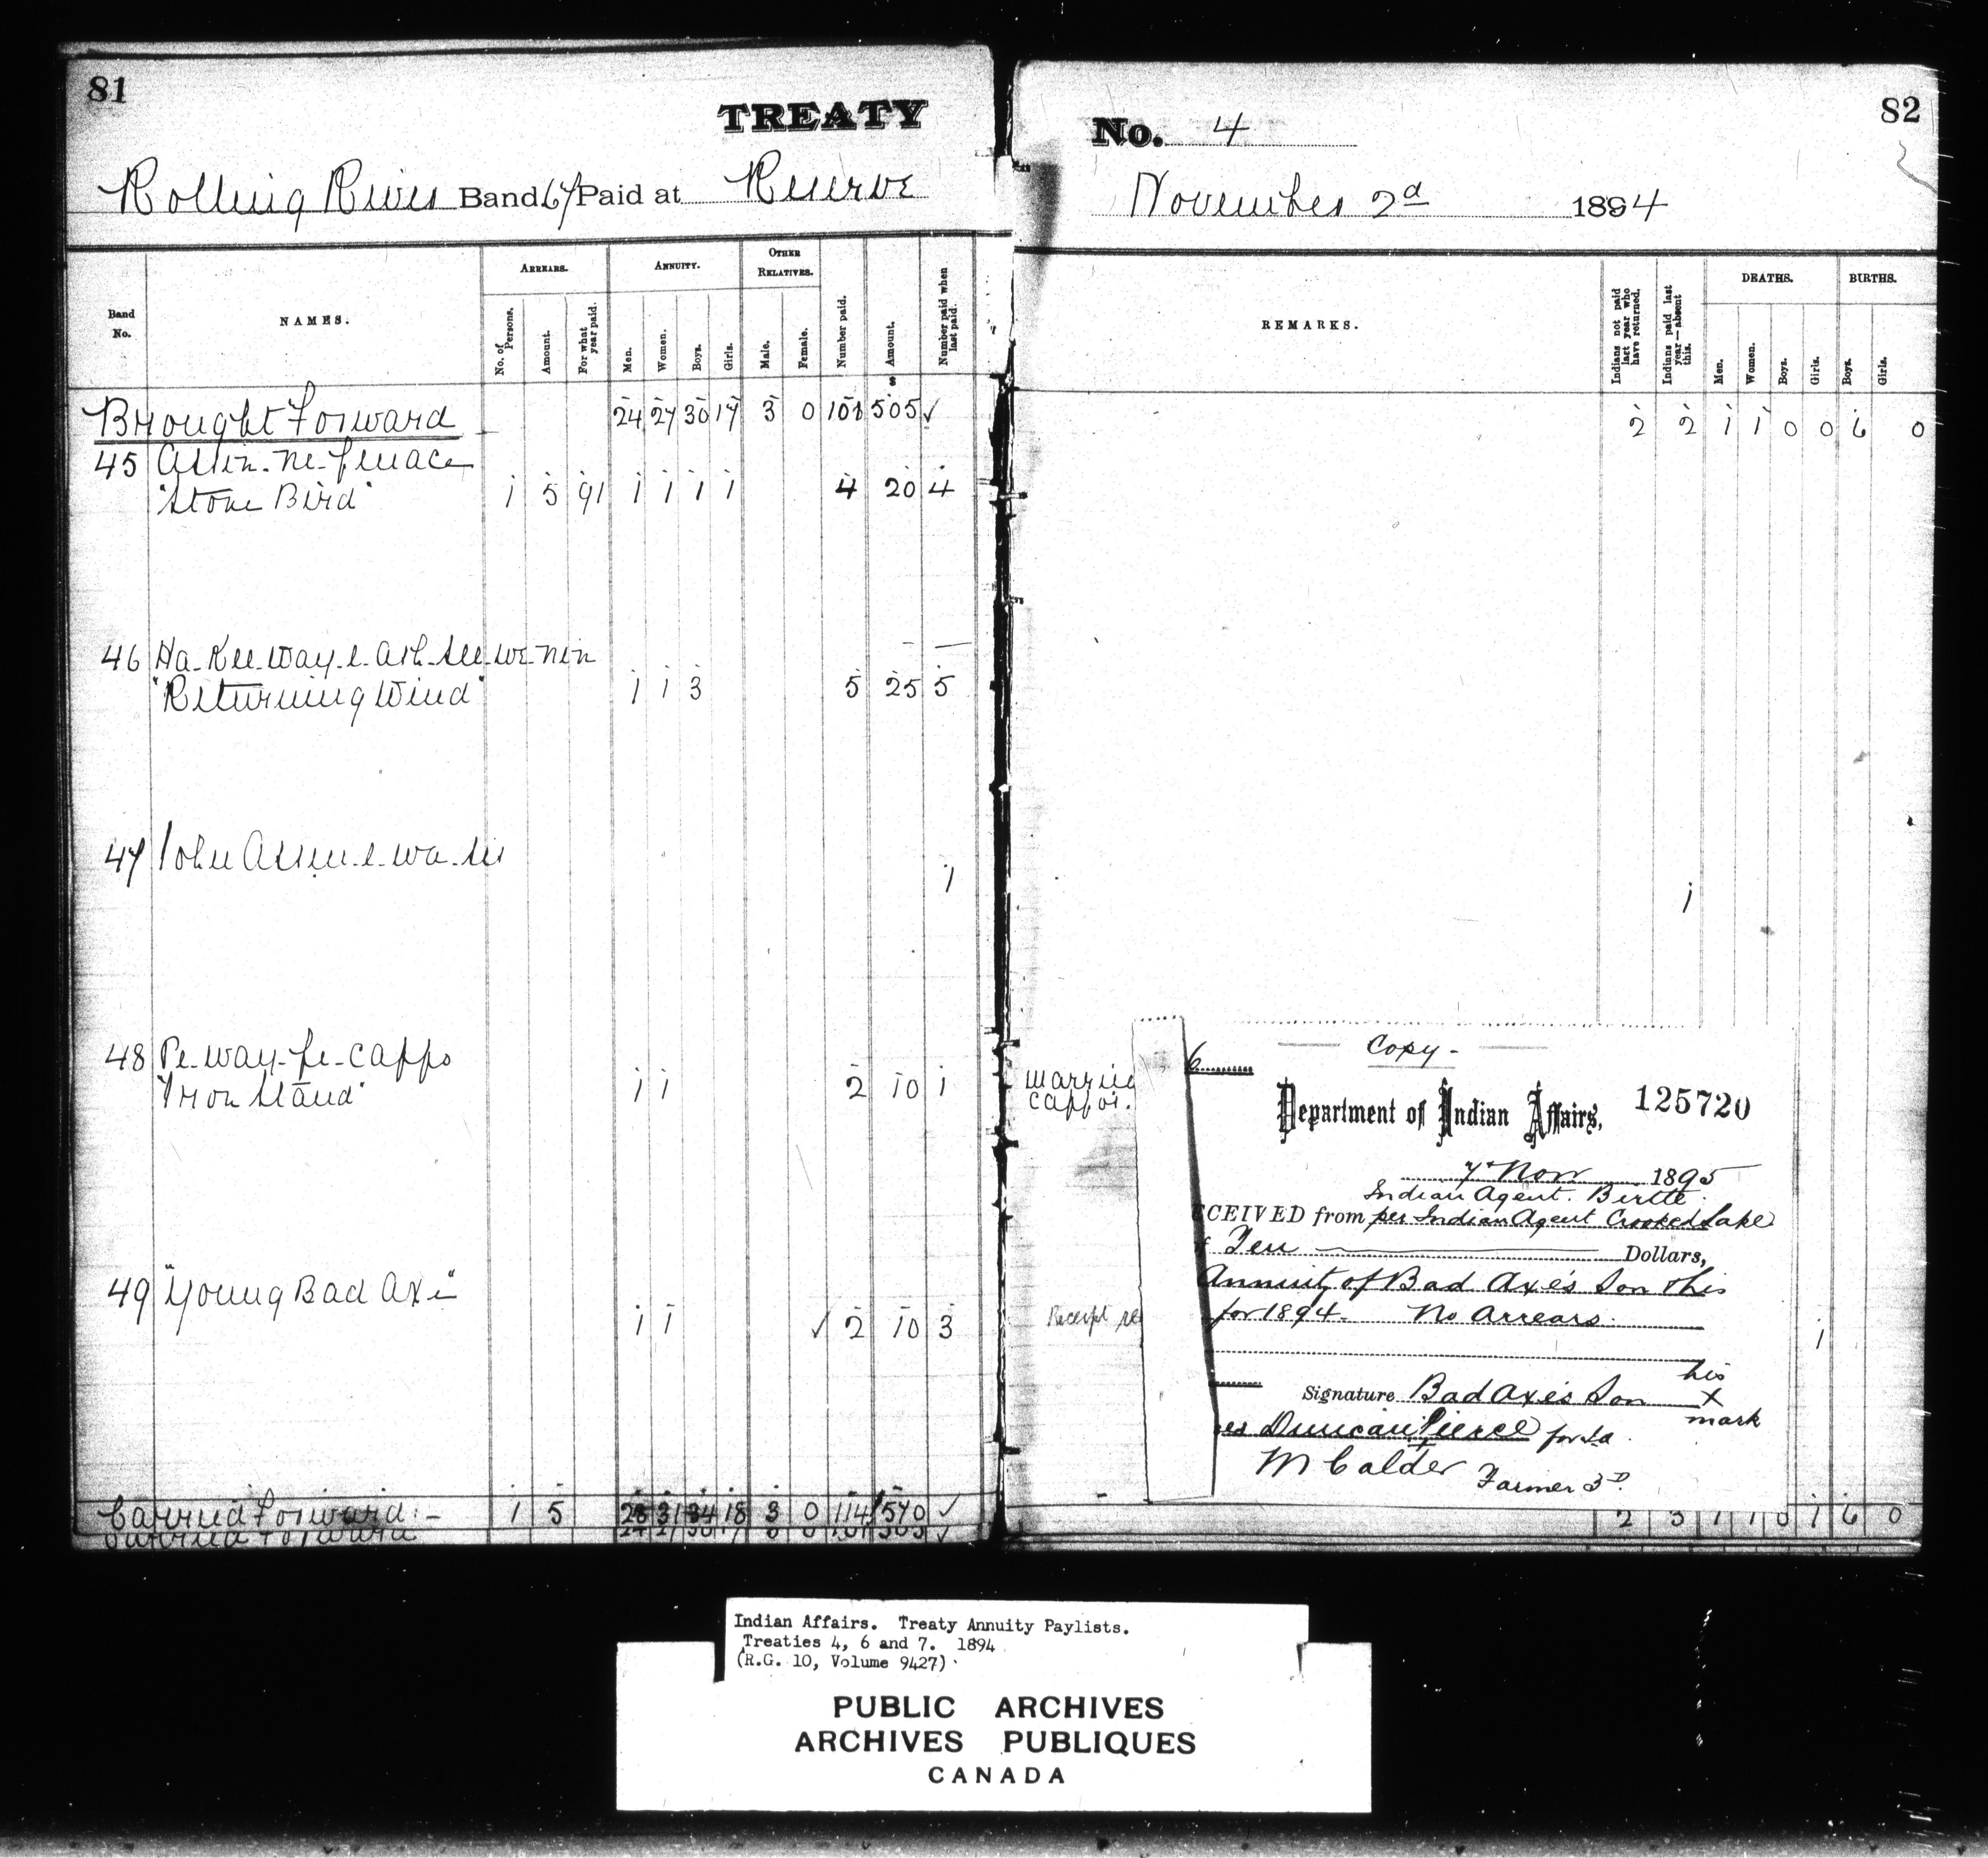 81
TREATY
Rolling River Band 67 Paid at Reserve
Band No. NAMES. ARREARS. ANNUITY. OTHER RELATIVES. Number paid. Amount. Number paid when last paid.
No. of Persons. Amount. For what year paid. Men. Women. Boys. Girls. Male. Female.
$
Brought Forward 24 27 30 17 3 0 101 505 ✓
45 Assin-ne-penace
"Stone Bird" 1 5 91 1 1 1 1 4 20 4
46 Ha-Kee-way-e-ash-see-we-nin
"Returning Wind" 1 1 3 5 25 5
47 John Assin-e-wa-sis
1
48 Pe-way-pe-cappo
"Iron Stand" 1 1 2 10 1
49 "Young Bad Axe"
1 1 ✓ 2 10 3
Carried Forward :- 1 5 28 31 34 18 3 0 114 570 ✓
Carried Forward
82
No. 4
November 2d 1894
REMARKS. Indians not paid last year who have returned. Indians paid last year—absent this. DEATHS. BIRTHS.
Men. Women. Boys. Girls. Boys. Girls.
2 2 1 1 0 0 6 0
1
married
cappos.
Receipt re
1
2 3 1 1 0 1 6 0
Copy -
6
Department of Indian Affairs, 125720
7th Nov 1895
Indian Agent. Birtle
CEIVED from per Indian Agent Crooked Lake
Ten Dollars,
Annuity of Bad Axe's Son this
for 1894. No Arrears.
his
Signature Bad Axe's Son X
mark
es Duncan Pierce for Ia
M Calder Farmer 3D.
Indian Affairs. Treaty Annuity Paylists.
Treaties 4, 6 and 7. 1894
(R.G. 10, Volume 9427)
PUBLIC ARCHIVES
ARCHIVES PUBLIQUES
CANADA